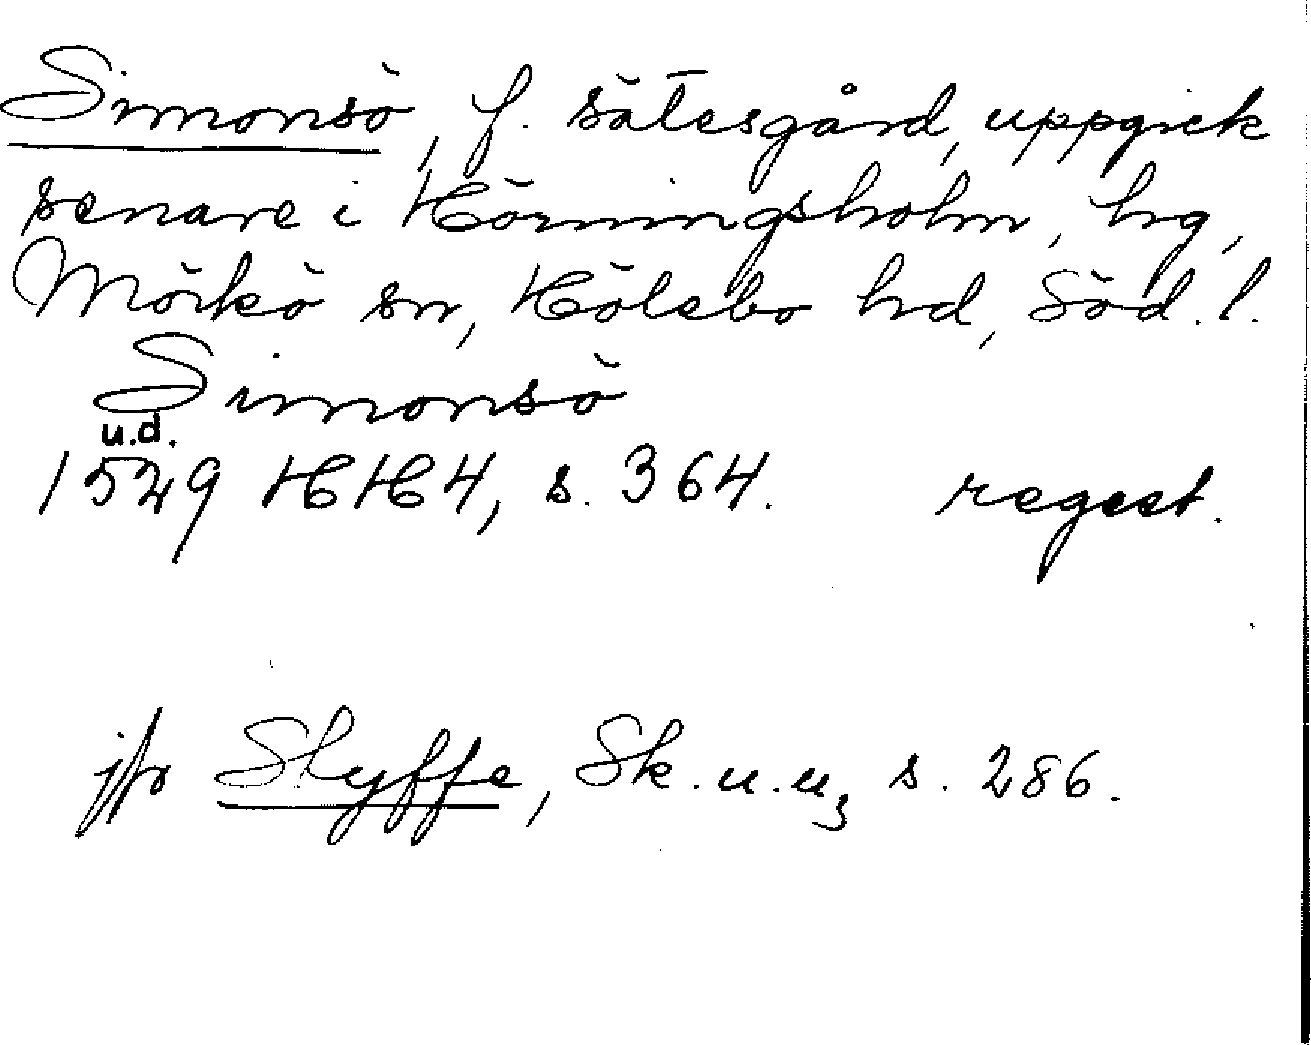 Simonsö, f. sätesgård, uppgick
senare i Hörningsholm, hg,
Mörkö sn, Hölebo hd, Söd. l.
Simonsö
u.d.
1529 HH4, s. 364. regest.
jfr Styffe, Sk. u. u₃ s. 286.